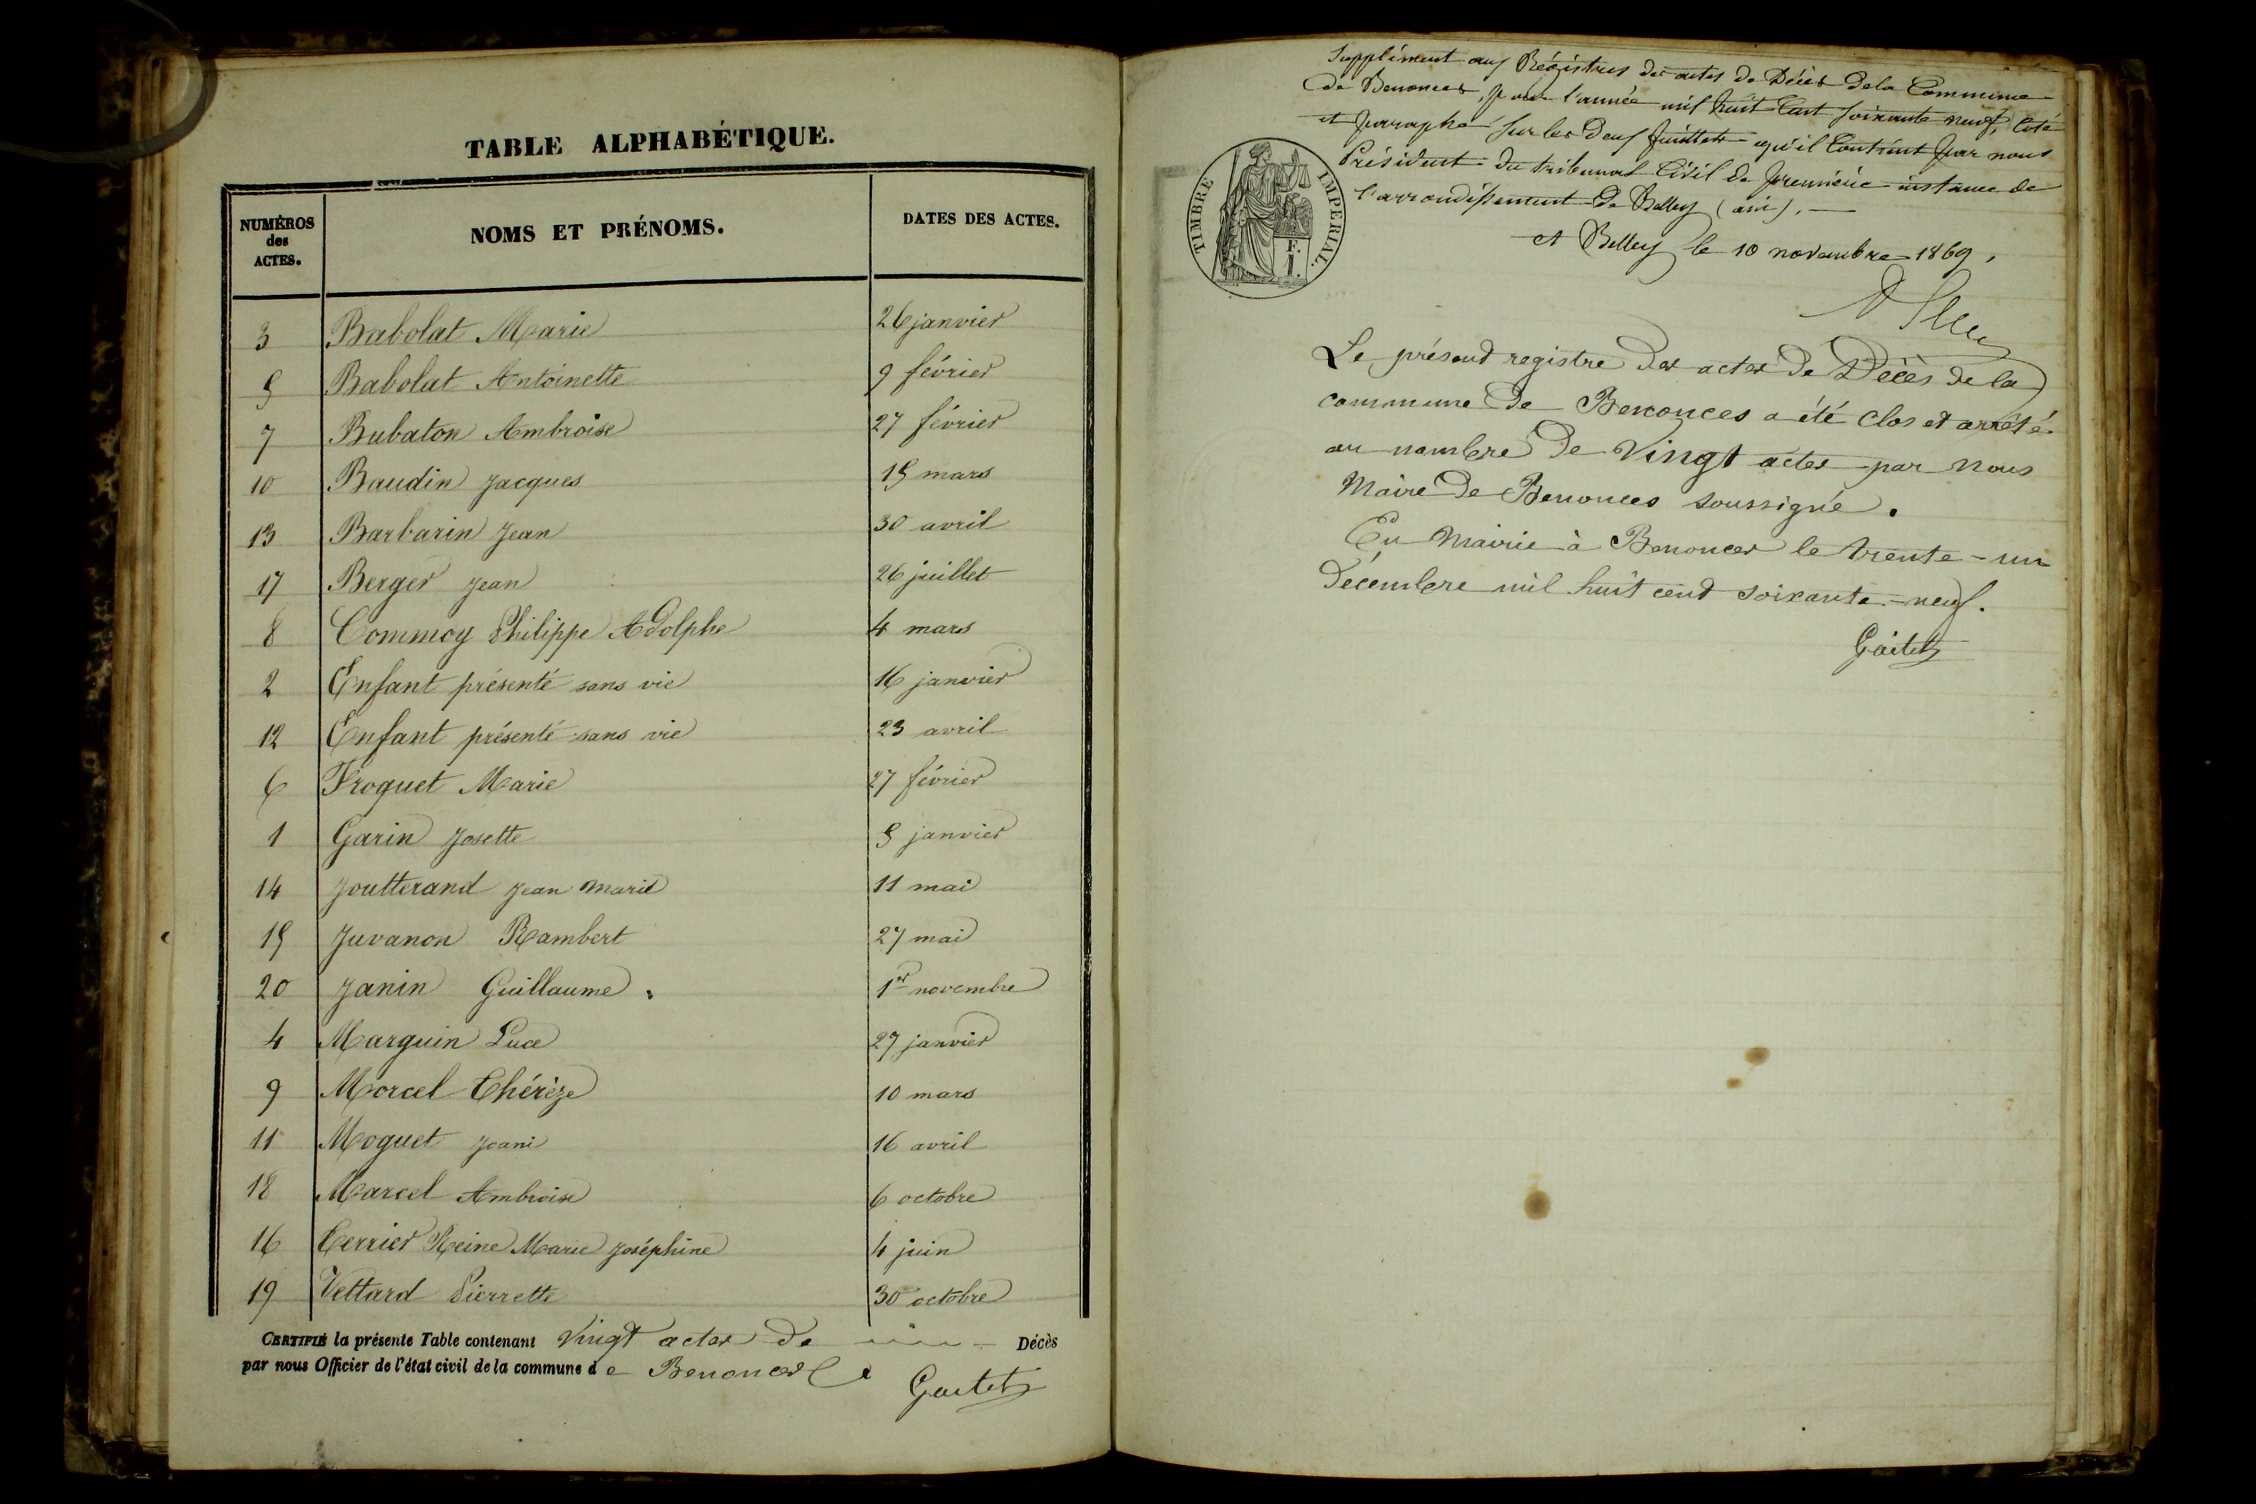 TABLE ALPHABÉTIQUE.
NUMÉROS des ACTES. NOMS ET PRÉNOMS. DATES DES ACTES.
3 Babolat Marie 26 janvier
5 Babolat Antoinette 9 février
7 Bubaton Ambroise 27 février
10 Baudin Jacques 15 mars
13 Barbarin Jean 30 avril
17 Berger Jean 26 juillet
8 Commoy Philippe Adolphe 4 mars
2 Enfant présenté sans vie 16 janvier
12 Enfant présenté sans vie 23 avril
6 Froquet Marie 27 février
1 Garin Josette 5 janvier
14 Joutterand Jean Marie 11 mai
15 Juvanon Rambert 27 mai
20 Janin Guillaume. 1er novembre
4 Marguin Luce 27 janvier
9 Morcel Thérèze 10 mars
11 Moguet 16 avril
18 Marcel Ambroise 6 octobre
16 Terrier Reine Marie Joséphine 4 juin
19 Vettard Pierrette 30 octobre
CERTIFIÉ la présente Table contenant Vingt actes de Décès
par nous Officier de l'état civil de la commune de Benonces
Gaitet
Supplément aux Régistres des actes de Décès de la Commune
de Benonces, pour l'année mil huit Cent soixante neuf, Coté
et paraphé sur les deux feuillets qu'il Contient par nous
Président du tribunal Civil de première instance de
l'arrondissement de Belley (ain). —
A Belley le 10 novembre 1869.
TIMBRE IMPÉRIAL.
F. 1.
Le présent registre des actes de Décès de la
commune de Benonces a été clos et arrêté
au nombre de Vingt actes par Nous
Maire de Benonces soussigné.
En Mairie à Benonces le trente-un
Décembre mil huit cent soixante-neuf.
Gaitet